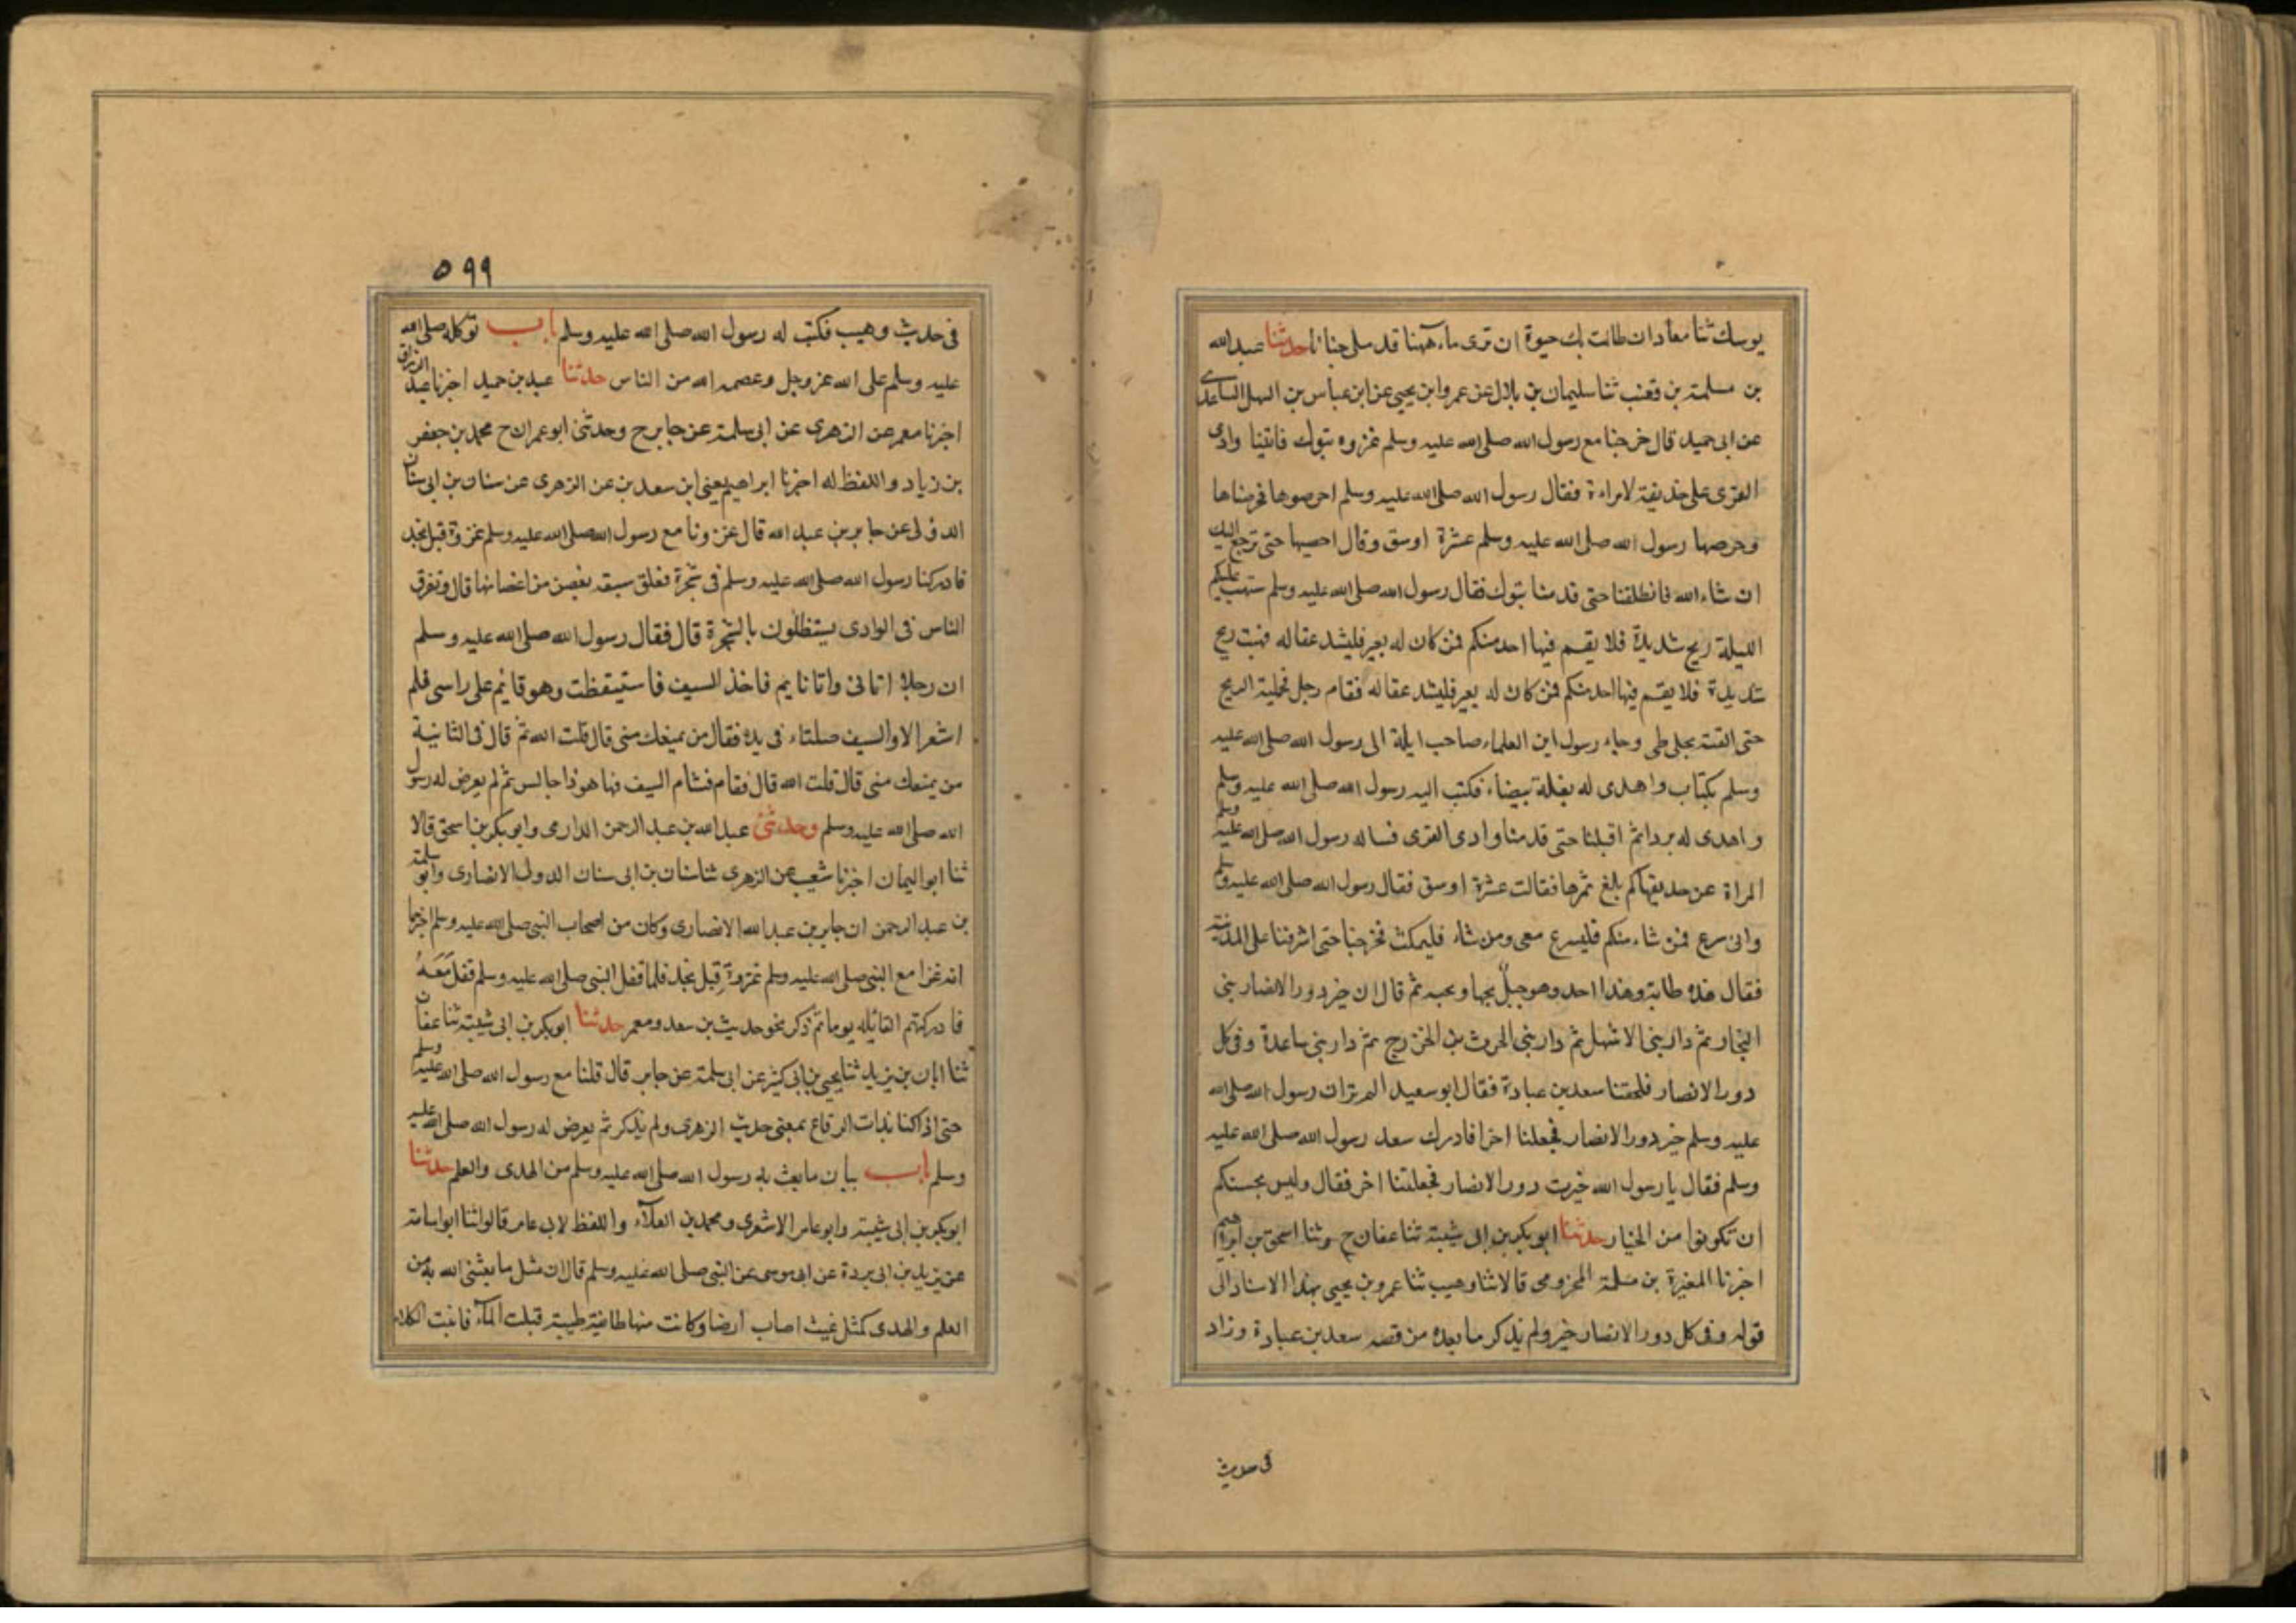 يوسك ثنا معاذ ان طالت بك حيوة ان ترى ماء ههنا قد ملى جنانا حدثنا عبد الله
بن مسلمة بن قعنب ثنا سليمان بن بلال عن عمرو ابن يحيى عن ابن عباس بن السهل الساعدى
عن ابى حميد قال خرجنا مع رسول الله صلى الله عليه وسلم غزوه تبوك فاتينا وادى
القرى على حذيقة لامراءة فقال رسول الله صلى الله عليه وسلم احرصوها فخرصناها
وخرصها رسول الله صلى الله عليه وسلم عشرة اوسق وقال احصيها حتى ترجع اليك
ان شاء الله فانطلقنا حتى قدمنا تبوك فقال رسول الله صلى الله عليه وسلم ستهب عليكم
الليلة ريح شديدة فلا يقسم فيها احد منكم فمن كان له بعير فليشد عقاله فهبت ريح
شديدة فلا يقسم فيها احد منكم فمن كان له بعير فليشد عقاله فقام رجل فحملته الريح
حتى القته بجبلى طى وجاء رسول ابن العلماء صاحب ايلة الى رسول الله صلى الله عليه
وسلم بكتاب واهدى له بغلة بيضاء فكتب اليه رسول الله صلى الله عليه وسلم
واهدى له بردا ثم اقبلنا حتى قدمنا وادى القرى فساله رسول الله صلى الله عليه وسلم
المراة عن حديقتها كم بلغ ثمرها فقالت عشرة اوسق فقال رسول الله صلى الله عليه وسلم
وانى سرع فمن شاء منكم فليسرع معى ومن شاء فليمكث فخرجنا حتى اشرفنا على المدينة
فقال هذه طابة وهذا احد وهو جبل يحبها ويحبه ثم قال ان خير دور الانصار بنى
النجار ثم دار بنى الاشهل ثم دار بنى الحرث بن الخزرج ثم دار بنى ساعدة وفى كل
دور الانصار فلحقنا سعد بن عبادة فقال ابو سعيد الم تر ان رسول الله صلى الله
عليه وسلم خير دور الانصار فجعلنا اخرا فادرك سعد رسول الله صلى الله عليه
وسلم فقال يا رسول الله خيرت دور الانصار فجعلتنا اخر فقال وليس بحسبكم
ان تكونوا من الخيار حدثنا ابو بكر بن ابى شيبة ثنا عفان ح وثنا اسحق بن ابراهيم
اخبرنا المغيرة بن مسلمة المخزومى قالا ثنا وهيب ثنا عمرو بن يحيى بهذا الاسناد الى
قوله وفى كل دور الانصار خير ولم يذكر ما بعده من قصه سعد بن عبادة وزاد
فى حديث
٥٩٩
فى حديث وهيب فكتب له رسول الله صلى الله عليه وسلم باب توكله صلى الله
عليه وسلم على الله عز وجل وعصمه الله من الناس حدثنا عبد بن حميد اخبرنا عبد الرزاق
اخبرنا معمر عن الزهرى عن ابى سلمة عن جابر ح وحدثنى ابو عمران ح محمد بن جعفر
بن زياد واللفظ له اخبرنا ابراهيم يعنى ابن سعد بن عن الزهرى عن سنان بن ابى سنان
الدولى عن جابر بن عبد الله قال غزونا مع رسول الله صلى الله عليه وسلم غزوة قبل نجد
فادركنا رسول الله صلى الله عليه وسلم فى شجرة فعلق سيفه بغصن من اغصانها قال وتفرق
الناس فى الوادى يستظلون بالشجرة قال فقال رسول الله صلى الله عليه وسلم
ان رجلا اتانى وانا نايم فاخذ السيف فاستيقظت وهو قائم على راسى فلم
اشعر الا والسيف صلتاء فى يده فقال من يمنعك منى قال قلت الله ثم قال فى الثانية
من يمنعك منى قال قلت الله قال فقام فشام السيف فها هو ذا جالس ثم لم يعرض له رسول
الله صلى الله عليه وسلم وحدثنى عبد الله بن عبد الرحمن الدارمى وابو بكر بن اسحق قالا
ثنا ابو اليمان اخبرنا شعيب عن الزهرى ثنا سنان بن ابى سنان الدولى الانصارى وابو سلمة
بن عبد الرحمن ان جابر بن عبد الله الانصارى وكان من اصحاب النبى صلى الله عليه وسلم اخبرهما
انه غزا مع النبى صلى الله عليه وسلم غزوة قبل نجد فلما قفل النبى صلى الله عليه وسلم قفل معه
فادركتهم القائله يوما ثم ذكر نحو حديث بن سعد ومعمر حدثنا ابو بكر بن ابى شيبة ثنا عفان
ثنا ابان بن يزيد ثنا يحيى بن ابى كثير عن ابى سلمة عن جابر قال قلنا مع رسول الله صلى الله عليه وسلم
حتى اذا كنا بذات الرقاع بمعنى حديث الزهرى ولم يذكر ثم يعرض له رسول الله صلى الله عليه
وسلم باب بيان ما بعث به رسول الله صلى الله عليه وسلم من الهدى والعلم حدثنا
ابو بكر بن ابى شيبة وابو عامر الاشعرى ومحمد بن العلآء واللفظ لابى عامر قالوا ثنا ابو اسامة
عن يزيد بن ابى بردة عن ابى موسى عن النبى صلى الله عليه وسلم قال ان مثل ما بعثنى الله به من
العلم والهدى كمثل غيث اصاب ارضا وكانت منها طائفة طيبة قبلت المآء فانبت الكلاء